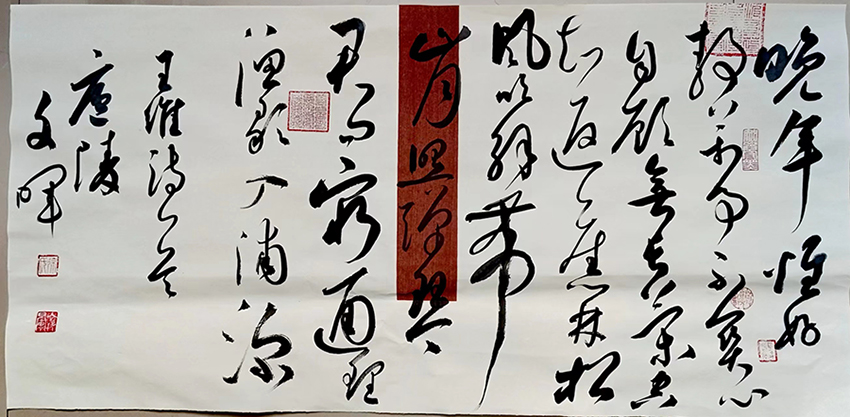 晚年惟好
静万事不关心
自顾无长策空
知返旧林松
风吹解带
山月照弹琴
君问穷通理
渔歌入浦深
王维诗一首
庐陵
文晖